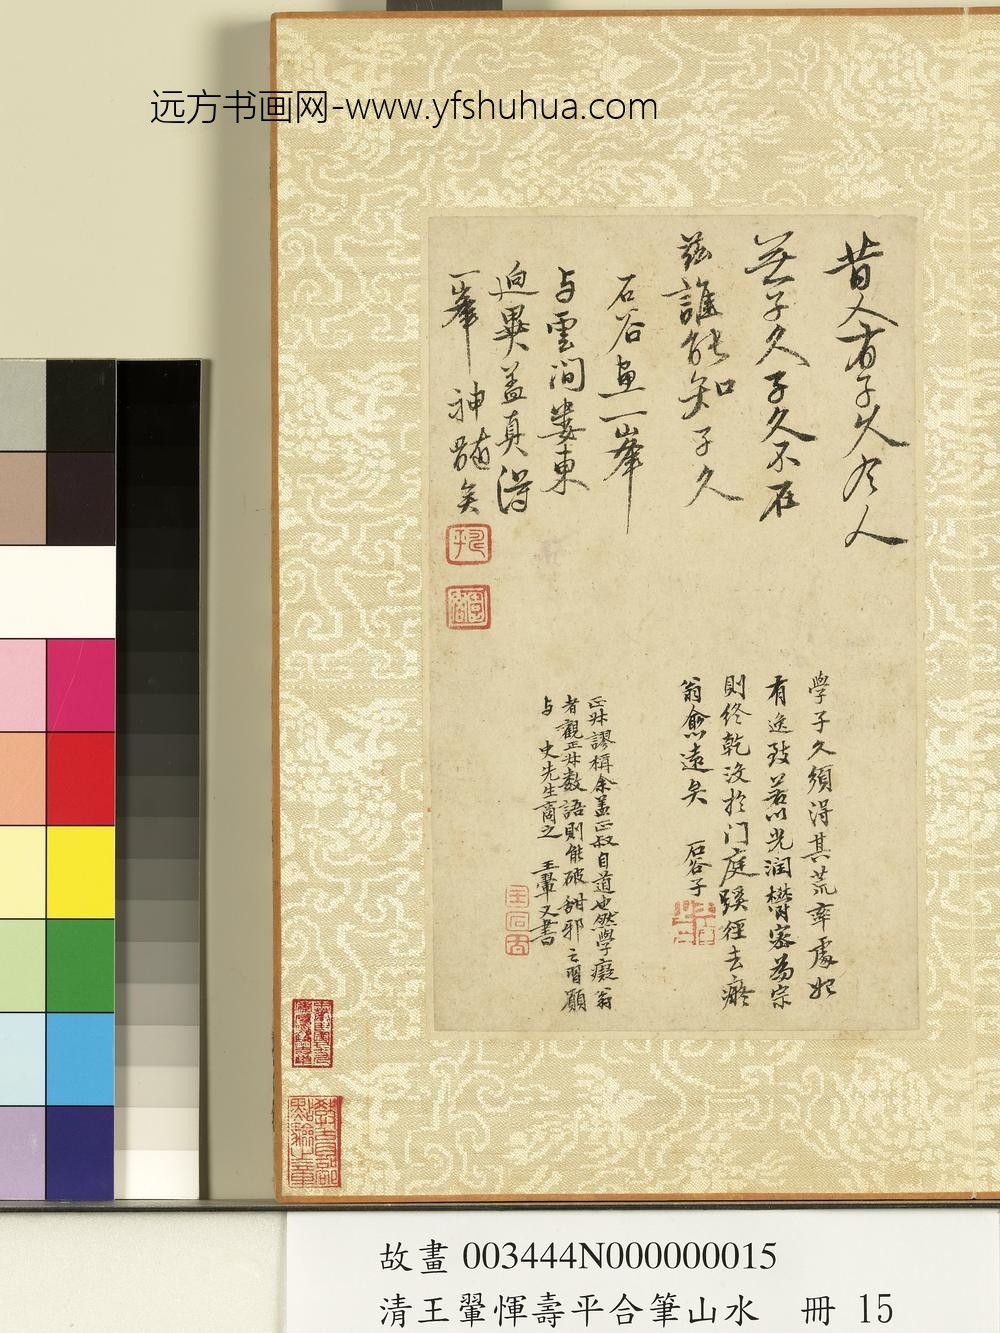 远方书画网-www.yfshuhua.com
昔人有子久今人
無子久子久不在
茲誰能知子久
石谷畫一峯
与雲間婁東
迥異盖真得
一峯神髓矣
學子久須得其荒率處始
有逸致若以光润欝密為宗
則終乾没於门庭蹊徑去癡
翁愈遠矣 石谷子
正叔謬稱余盖正叔自道也然學癡翁
者觀正叔数語則能破甜邪之習願
与 史先生商之 王翬又書
故畫 003444N000000015
清王翬惲壽平合筆山水 冊 15